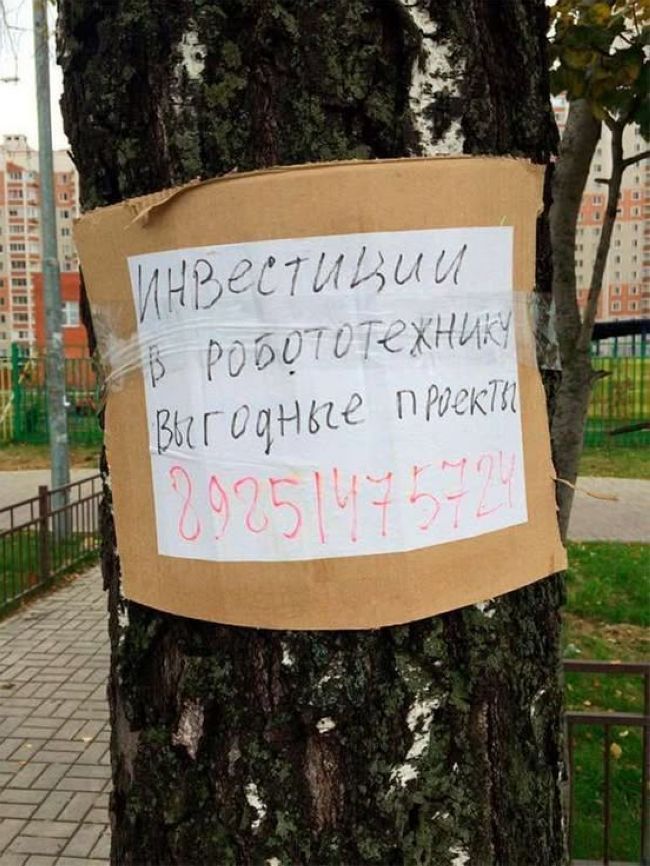 ИНВЕСТИЦИИ
В РОБОТОТЕЖНИКУ
ВЫГОДНЫЕ ПРОЕКТЫ
89851475724